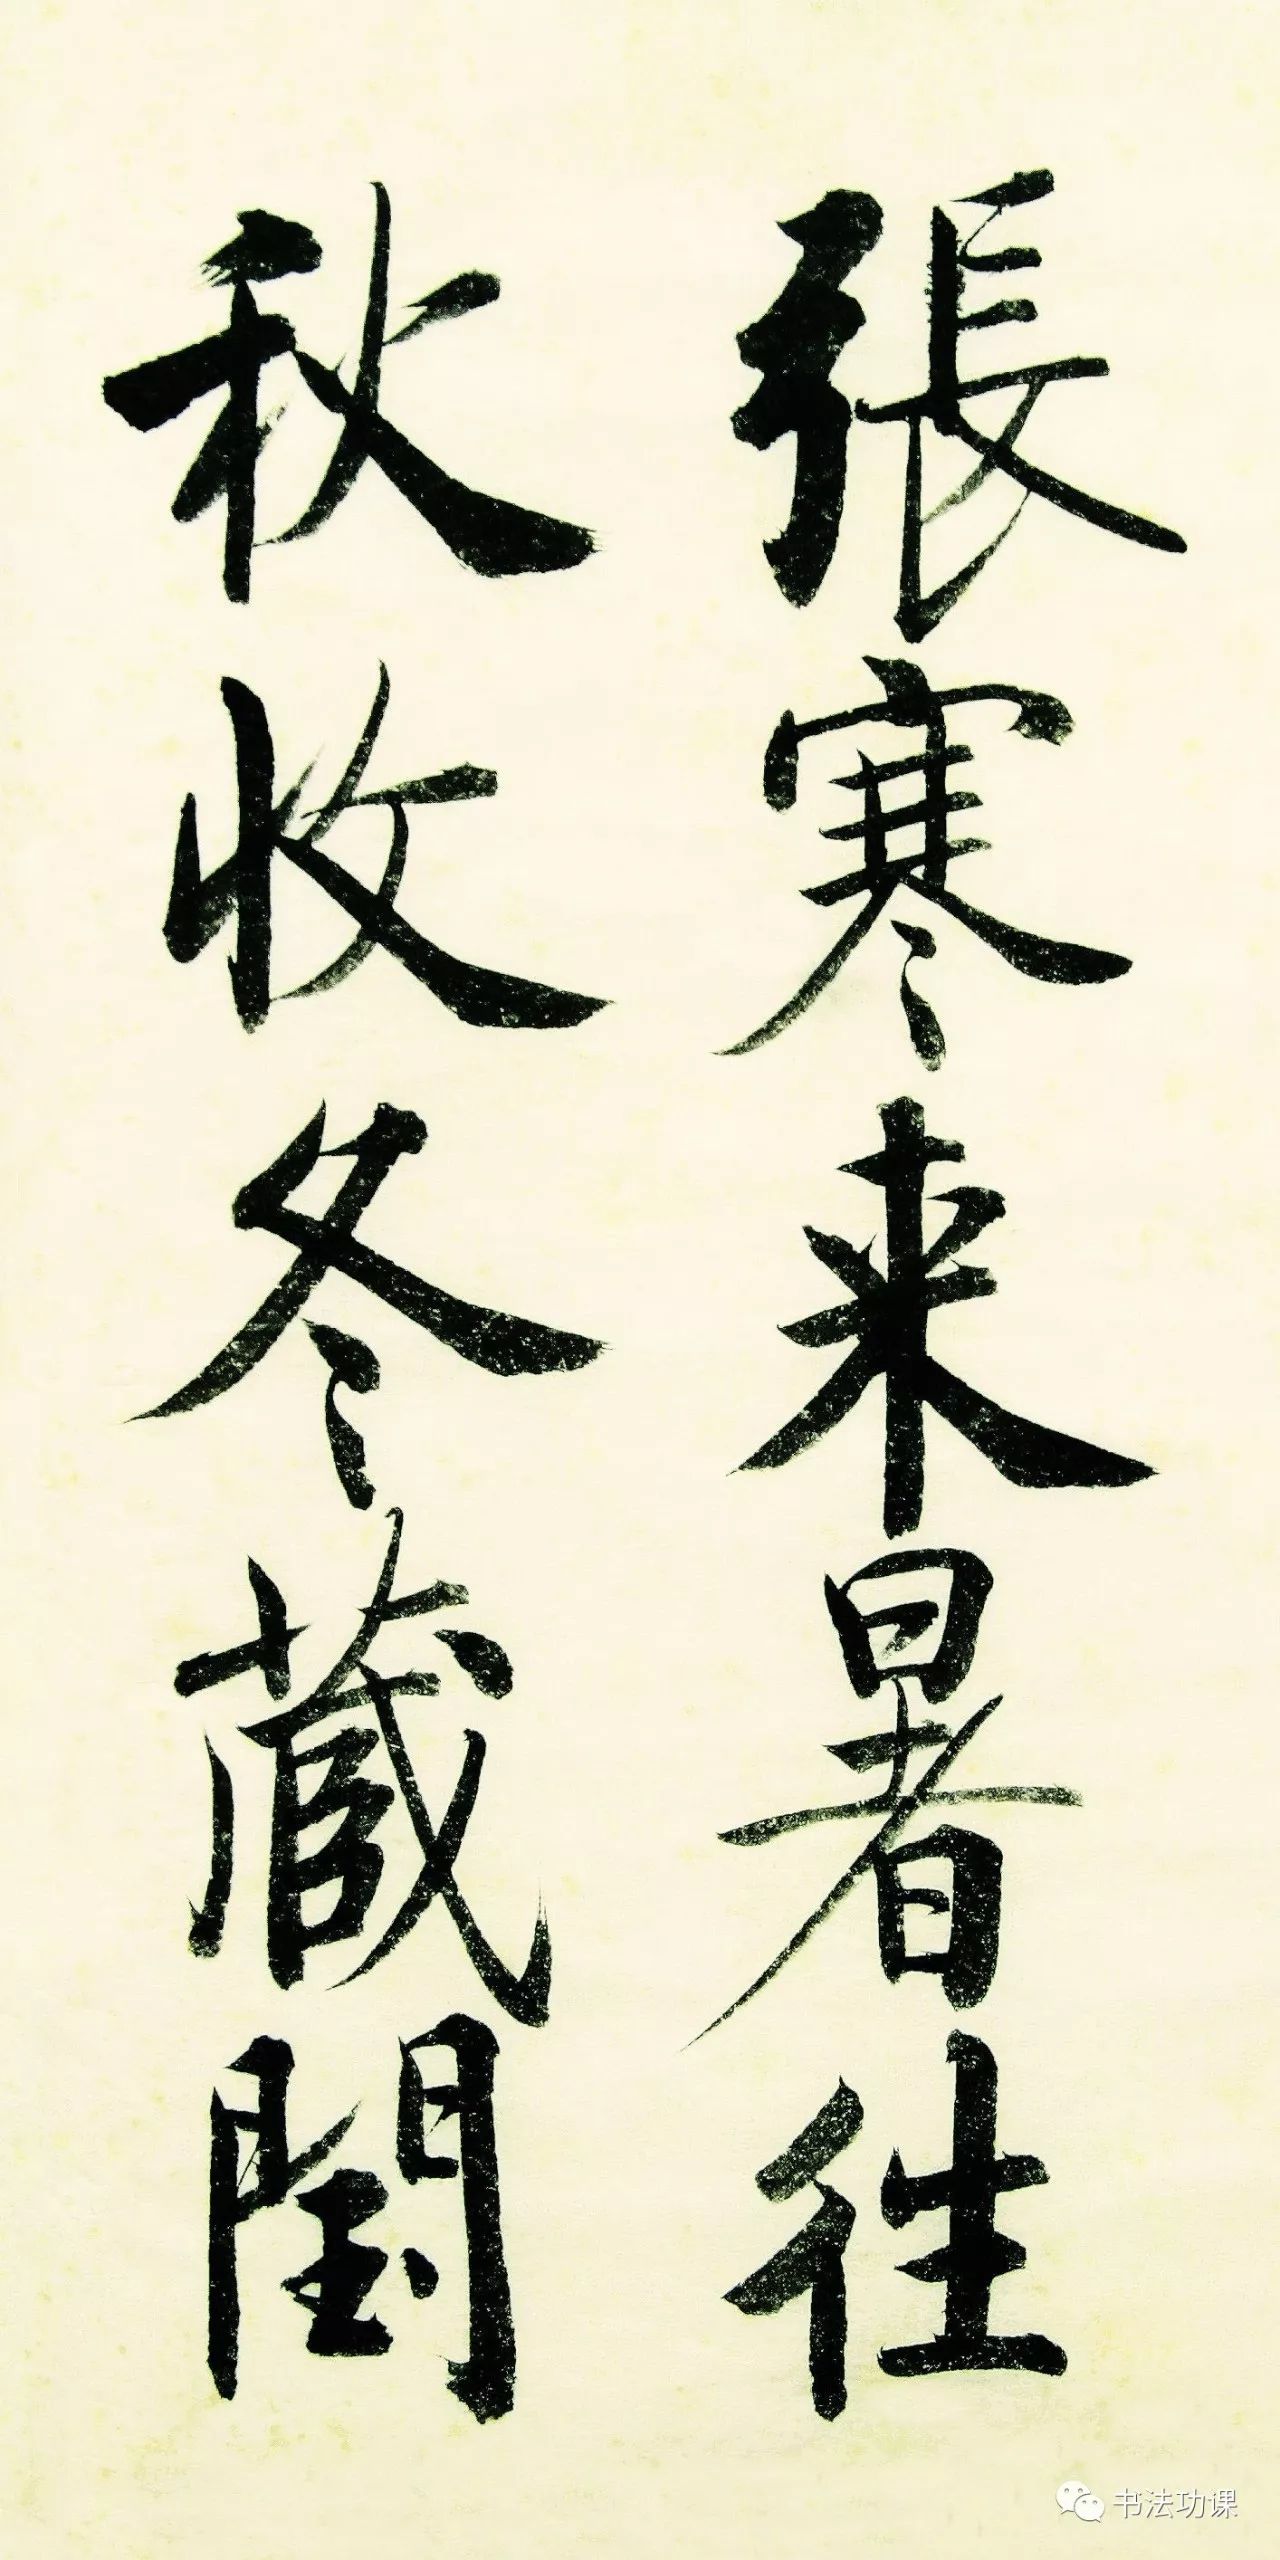 張寒来暑往
秋收冬蔵閏
书法功课